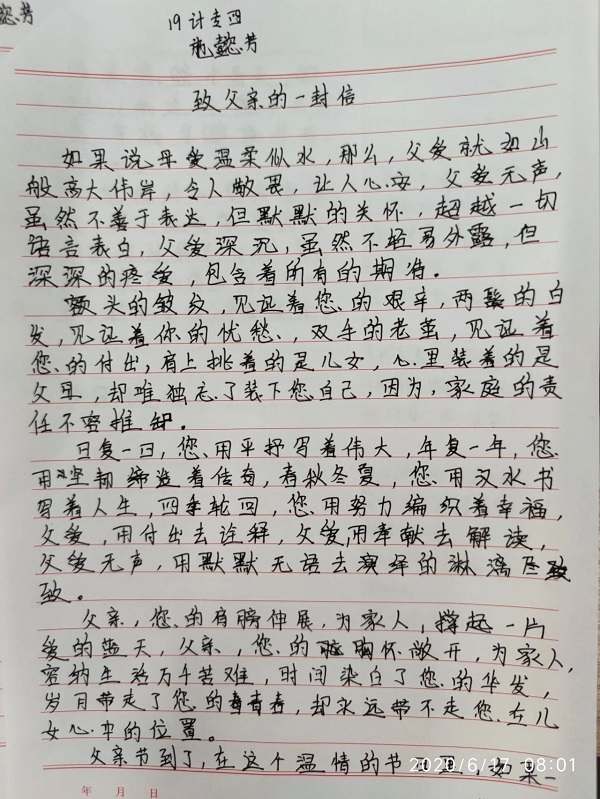 懿芳
19计专四
池懿芳
致父亲的一封信
如果说母爱温柔似水,那么,父爱就如山
般高大伟岸,令人敬畏,让人心安,父爱无声,
虽然不善于表达,但默默的关怀,超越一切
语言表白,父爱深沉,虽然不轻易外露,但
深深的疼爱,包含着所有的期准。
额头的皱纹,见证着您的艰辛,两鬓的白
发,见证着你的忧愁,双手的老茧,见证着
您的付出,肩上挑着的是儿女,心里装着的是
父母,却唯独忘了装下您自己,因为,家庭的责
任不容推卸。
日复一日,您用平抒写着伟大,年复一年,您
用坚韧缔造着传奇,春秋冬夏,您用汉水书
写着人生,四季轮回,您用努力编织着幸福,
父爱,用付出去诠释,父爱,用奉献去解读,
父爱无声,用默默无语去演绎的淋漓尽致
致。
父亲,您的肩膀伸展,为家人,撑起一片
爱的蓝天,父亲,您的胸怀敞开,为家人,
容纳生活万千苦难,时间染白了您的华发,
岁月带走了您的青春,却永远带不走您在儿
女心中的位置。
父亲节到了,在这个温情的节日里,如果一
2020/6/17 08:01
年 月 日